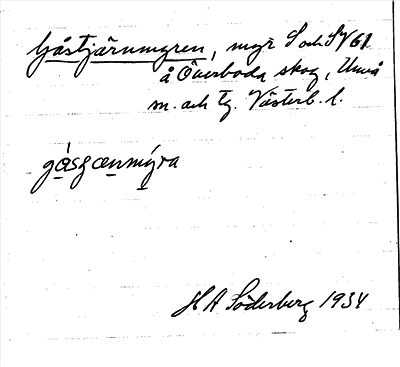 Gåstjärnmyren, myr S och SV 61
å Överboda skog, Umeå
m. och tg. Västerb. l.
gåsɡænmýra
H A Söderberg 1934